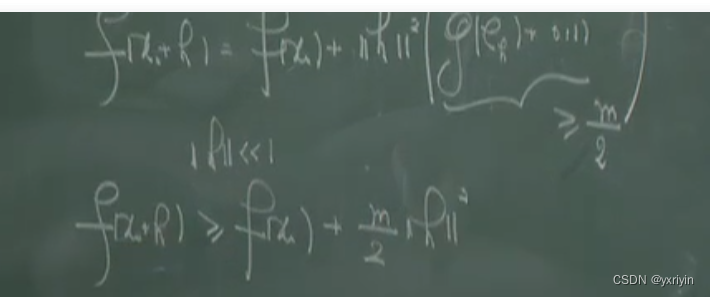 f(x₀+h) = f(x₀) + ‖h‖² ( g(e_h) + o(1) )
≥ m/2
‖h‖ << 1
f(x₀+h) ≥ f(x₀) + m/2 ‖h‖²
CSDN @yxriyin